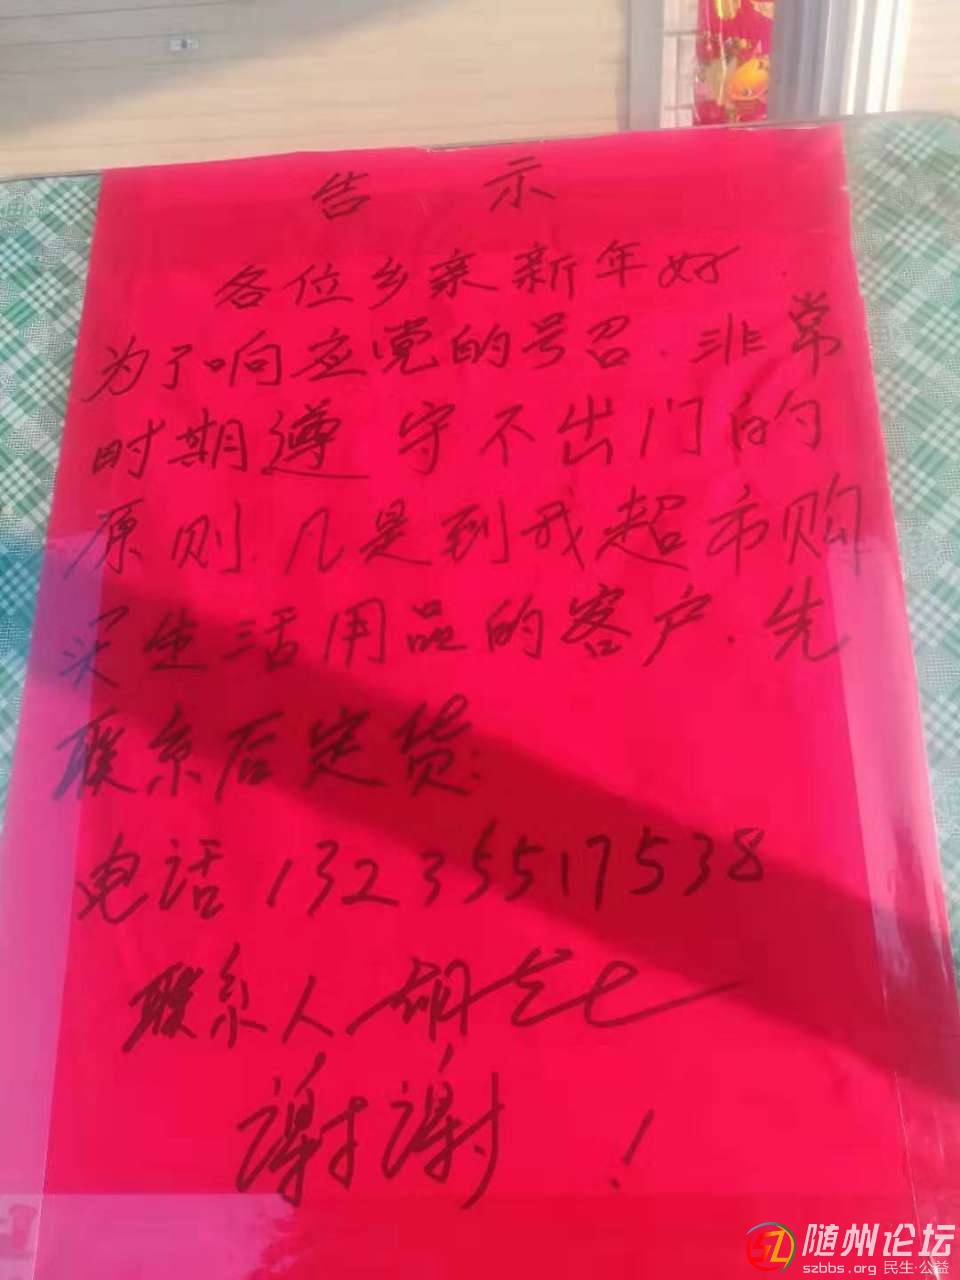 告 示
各位乡亲新年好
为了响应党的号召.非常
时期遵守不出门的
原则.凡是到我超市购
买生活用品的客户.先
联系后定货:
电话 13235517538
联系人 胡
谢谢!
随州论坛
szbbs.org 民生·公益